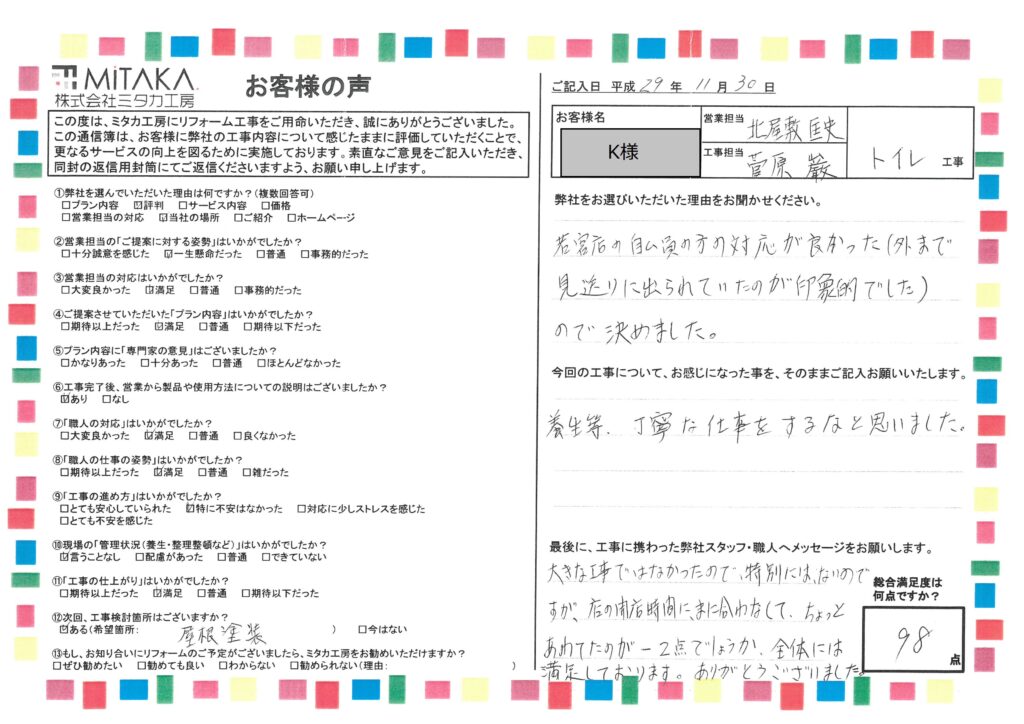 MiTAKA
株式会社ミタカ工房
お客様の声
この度は、ミタカ工房にリフォーム工事をご用命いただき、誠にありがとうございました。
この通信簿は、お客様に弊社の工事内容について感じたままに評価していただくことで、
更なるサービスの向上を図るために実施しております。素直なご意見をご記入いただき、
同封の返信用封筒にてご返信くださいますよう、お願い申し上げます。
①弊社を選んでいただいた理由は何ですか?(複数回答可)
□プラン内容 ☑評判 □サービス内容 □価格
□営業担当の対応 ☑当社の場所 □ご紹介 □ホームページ
②営業担当の「ご提案に対する姿勢」はいかがでしたか?
□十分誠意を感じた ☑一生懸命だった □普通 □事務的だった
③営業担当の対応はいかがでしたか?
□大変良かった ☑満足 □普通 □事務的だった
④ご提案させていただいた「プラン内容」はいかがでしたか?
□期待以上だった ☑満足 □普通 □期待以下だった
⑤プラン内容に「専門家の意見」はございましたか?
□かなりあった □十分あった □普通 □ほとんどなかった
⑥工事完了後、営業から製品や使用方法についての説明はございましたか?
☑あり □なし
⑦「職人の対応」はいかがでしたか?
□大変良かった ☑満足 □普通 □良くなかった
⑧「職人の仕事の姿勢」はいかがでしたか?
□期待以上だった ☑満足 □普通 □雑だった
⑨「工事の進め方」はいかがでしたか?
□とても安心していられた ☑特に不安はなかった □対応に少しストレスを感じた
□とても不安を感じた
⑩現場の「管理状況(養生・整理整頓など)」はいかがでしたか?
☑言うことなし □配慮があった □普通 □できていない
⑪「工事の仕上がり」はいかがでしたか?
□期待以上だった ☑満足 □普通 □期待以下だった
⑫次回、工事検討箇所はございますか?
☑ある(希望箇所: 屋根塗装 ) □今はない
⑬もし、お知り合いにリフォームのご予定がございましたら、ミタカ工房をお勧めいただけますか?
□ぜひ勧めたい □勧めても良い □わからない □勧められない(理由: )
ご記入日 平成 29 年 11 月 30 日
お客様名
K様
営業担当 北屋敷 匡史
工事担当 菅原 巌
トイレ 工事
弊社をお選びいただいた理由をお聞かせください。
若宮店の自公員の方の対応が良かった(外まで
見送りに出られていたのが印象的でした)
ので決めました。
今回の工事について、お感じになった事を、そのままご記入お願いいたします。
養生等、丁寧な仕事をするなと思いました。
最後に、工事に携わった弊社スタッフ・職人へメッセージをお願いします。
大きな工事ではなかったので、特別には、ないので
すが、店の開店時間にまに合わなくて、ちょっと
あわてたのが−2点でしょうか、全体には
満足しております。ありがとうございました。
総合満足度は
何点ですか?
98 点